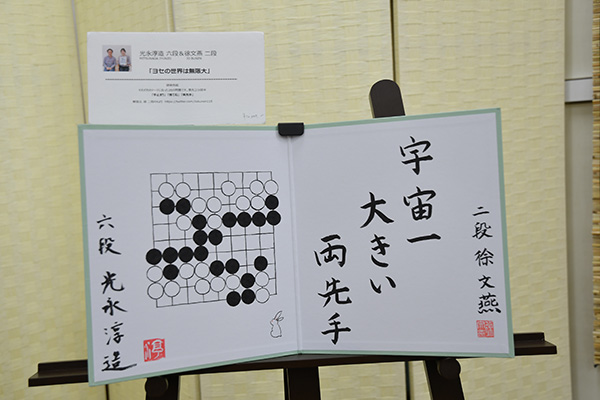 光永淳造 六段&徐文燕 二段
「ヨセの世界は無限大」
宇宙一
大きい
両先手
二段 徐文燕
六段 光永淳造